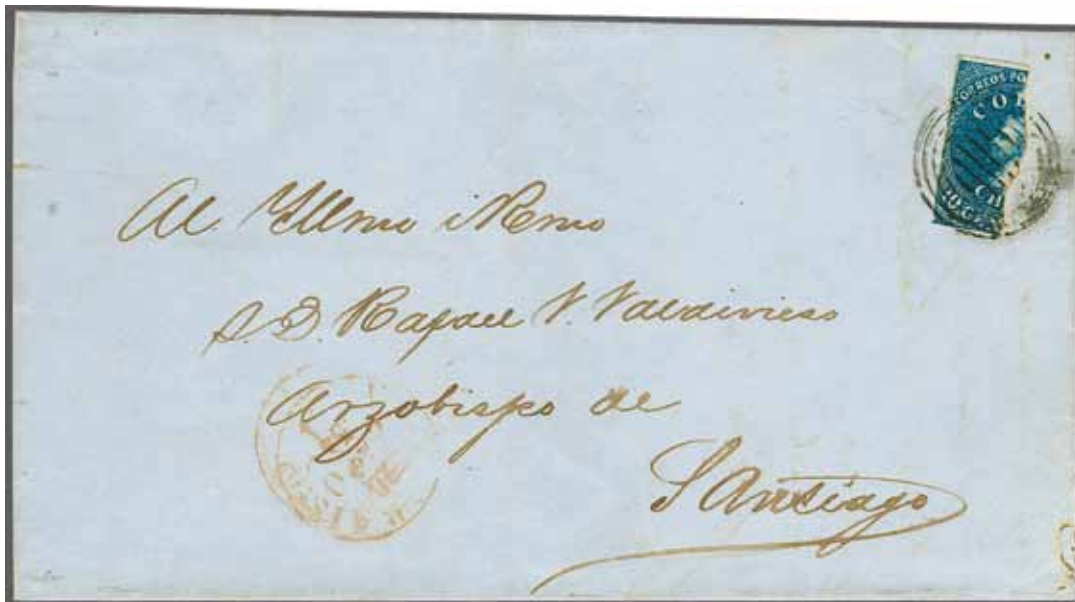 CORREOS PO
COL
10 C
Al Illmo i Rmo
S. D. Rafael V. Valdivieso
Arzobispo de
Santiago